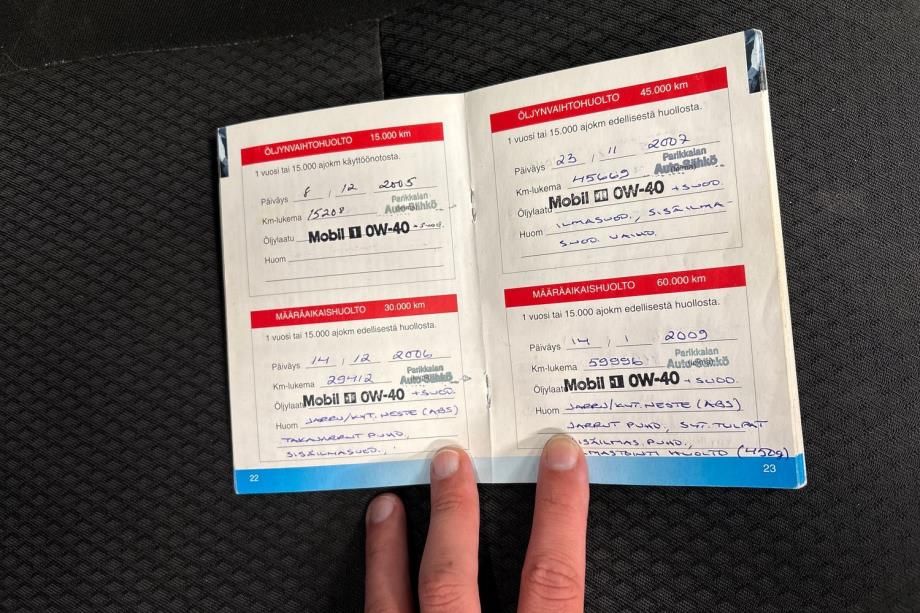 ÖLJYNVAIHTOHUOLTO 15.000 km
1 vuosi tai 15.000 ajokm käyttöönotosta.
Päiväys 8 / 12 2005
Parikkalan
Km-lukema 15208 Auto-Sähkö
Öljylaatu Mobil 1 0W-40 + SUOD.
Huom
MÄÄRÄAIKAISHUOLTO 30.000 km
1 vuosi tai 15.000 ajokm edellisestä huollosta.
Päiväys 14 / 12 2006
Parikkalan
Km-lukema 29412 Auto-Sähkö
Öljylaatu Mobil 1 0W-40 + SUOD.
Huom JARRU/KYT. NESTE (ABS)
TAKAJARRUT PUHD.,
SISÄILMASUOD.,
22
ÖLJYNVAIHTOHUOLTO 45.000 km
1 vuosi tai 15.000 ajokm edellisestä huollosta.
Päiväys 23 / 11 2007
Parikkalan
Km-lukema 45669 Auto-Sähkö
Öljylaatu Mobil 1 0W-40 + SUOD.
Huom ILMASUOD., SISÄILMA-
SUOD. VAIHD.
MÄÄRÄAIKAISHUOLTO 60.000 km
1 vuosi tai 15.000 ajokm edellisestä huollosta.
Päiväys 14 / 1 2009
Parikkalan
Km-lukema 59996 Auto-Sähkö
Öljylaatu Mobil 1 0W-40 + SUOD.
Huom JARRU/KYT. NESTE (ABS)
JARRUT PUHD, SYT. TULPAT
SISÄILMAS. PUHD.,
ILMASTOINTI HUOLTO (450g)
23